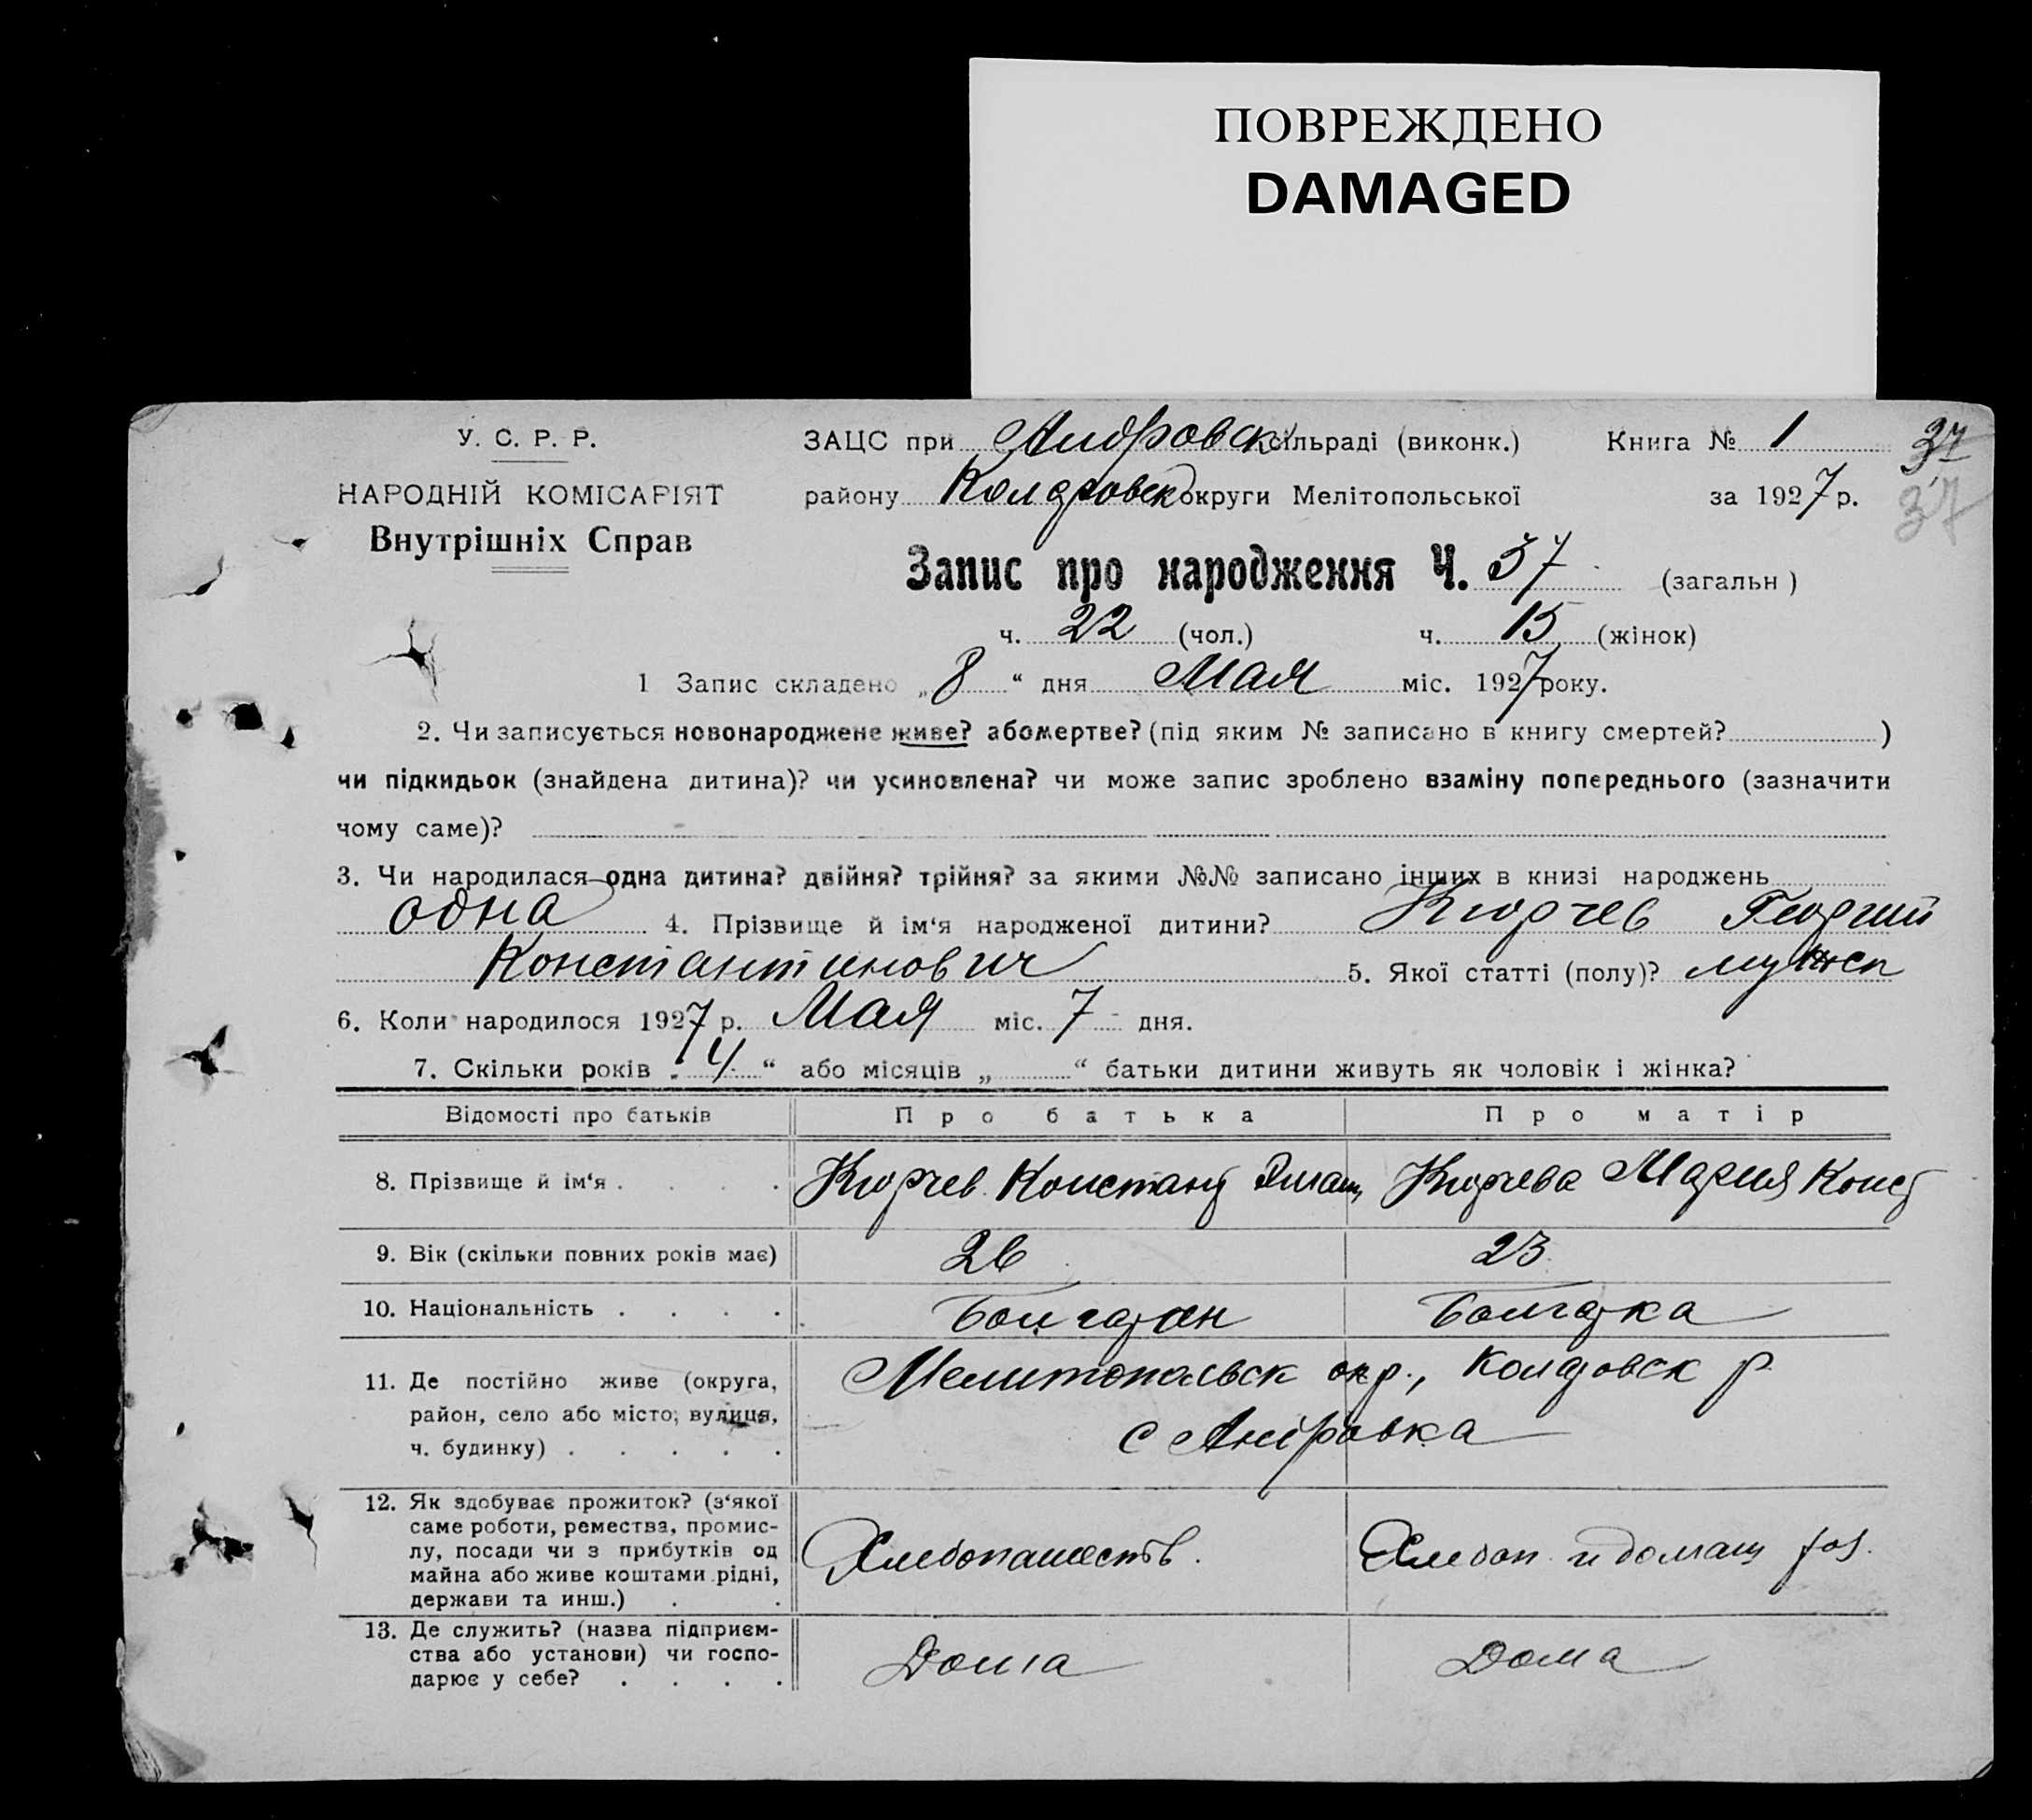 ПОВРЕЖДЕНО
DAMAGED
У. С. Р. Р.
НАРОДНІЙ КОМІСАРІЯТ
Внутрішніх Справ
ЗАЦС при Андровск сільраді (виконк.) Книга № 1 37
району Коларовск округи Мелітопольської за 1927 р. 37
Запис про народження Ч. 37 (загальн)
ч. 22 (чол.) ч. 15 (жінок)
1 Запис складено „8“ дня Мая міс. 1927 року.
2. Чи записується новонароджене живе? або мертве? (під яким № записано в книгу смертей? )
чи підкидьок (знайдена дитина)? чи усиновлена? чи може запис зроблено взаміну попереднього (зазначити
чому саме)?
3. Чи народилася одна дитина? двійня? трійня? за якими №№ записано інших в книзі народжень
одна 4. Прізвище й ім‘я народженої дитини? Кюрчев Георгий
Константинович 5. Якої статті (полу)? мужск
6. Коли народилося 1927 р. Мая міс. 7 дня.
7. Скільки років „4“ або місяців „ “ батьки дитини живуть як чоловік і жінка?
Відомості про батьків Про батька Про матір
8. Прізвище й ім‘я . . . . Кюрчев Констант Кюрчева Мария Конст
9. Вік (скільки повних років має) 26 23
10. Національність . . . . Болгарин Болгарка
11. Де постійно живе (округа,
район, село або місто, вулиця,
ч. будинку) . . . . .
Мелитопольск окр., Коларовск р.
с Андровка
12. Як здобуває прожиток? (з‘якої
саме роботи, ремества, промис-
лу, посади чи з прибутків од
майна або живе коштами рідні,
держави та инш.) . .
Хлебопашеств. Хлебоп и домаш
13. Де служить? (назва підприєм-
ства або установи) чи госпо-
дарює у себе? . . . .
Дома Дома